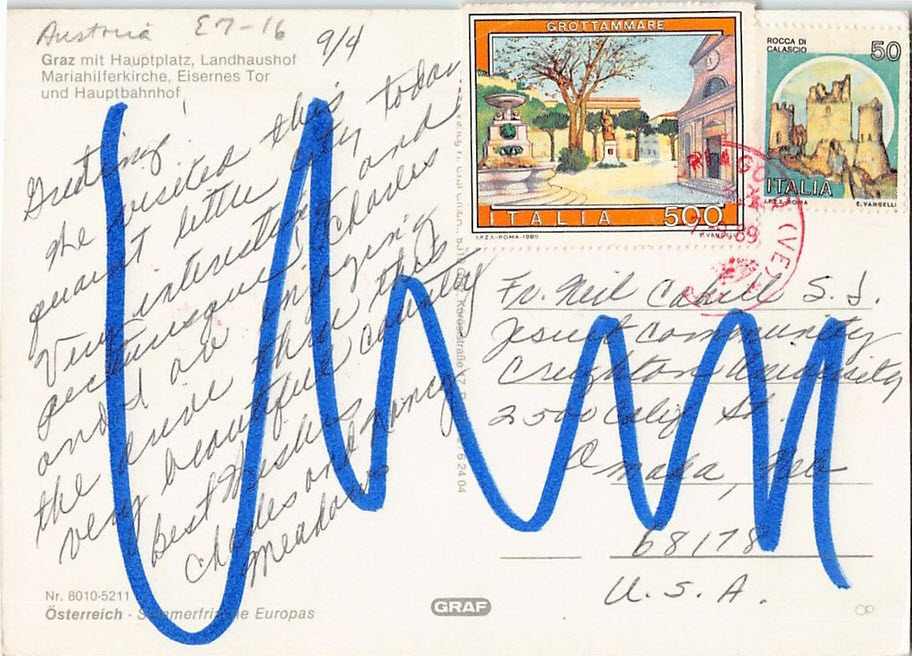 Austria E7-16
9/4
Graz mit Hauptplatz, Landhaushof
Mariahilferkirche, Eisernes Tor
und Hauptbahnhof
Greetings!
We visited this
quaint little city today
Very interesting and
picturesque! Charles
and I are enjoying
the drive thru this
very beautiful country
Best Wishes
Charles and Nancy
Meadows
Nr. 8010-5211
Österreich - Sommerfrische Europas
GRAF
GROTTAMMARE
ITALIA 500
I.P.Z.S.-ROMA-1989
ROCCA DI
CALASCIO
50
ITALIA
I.P.Z.S.-ROMA
E.VANGELLI
89
(VE)
6 24 04
Fr. Neil Cahill S. J.
Jesuit Community
Creighton University
2500 Calif St.
Omaha, Neb
68178
U. S. A.